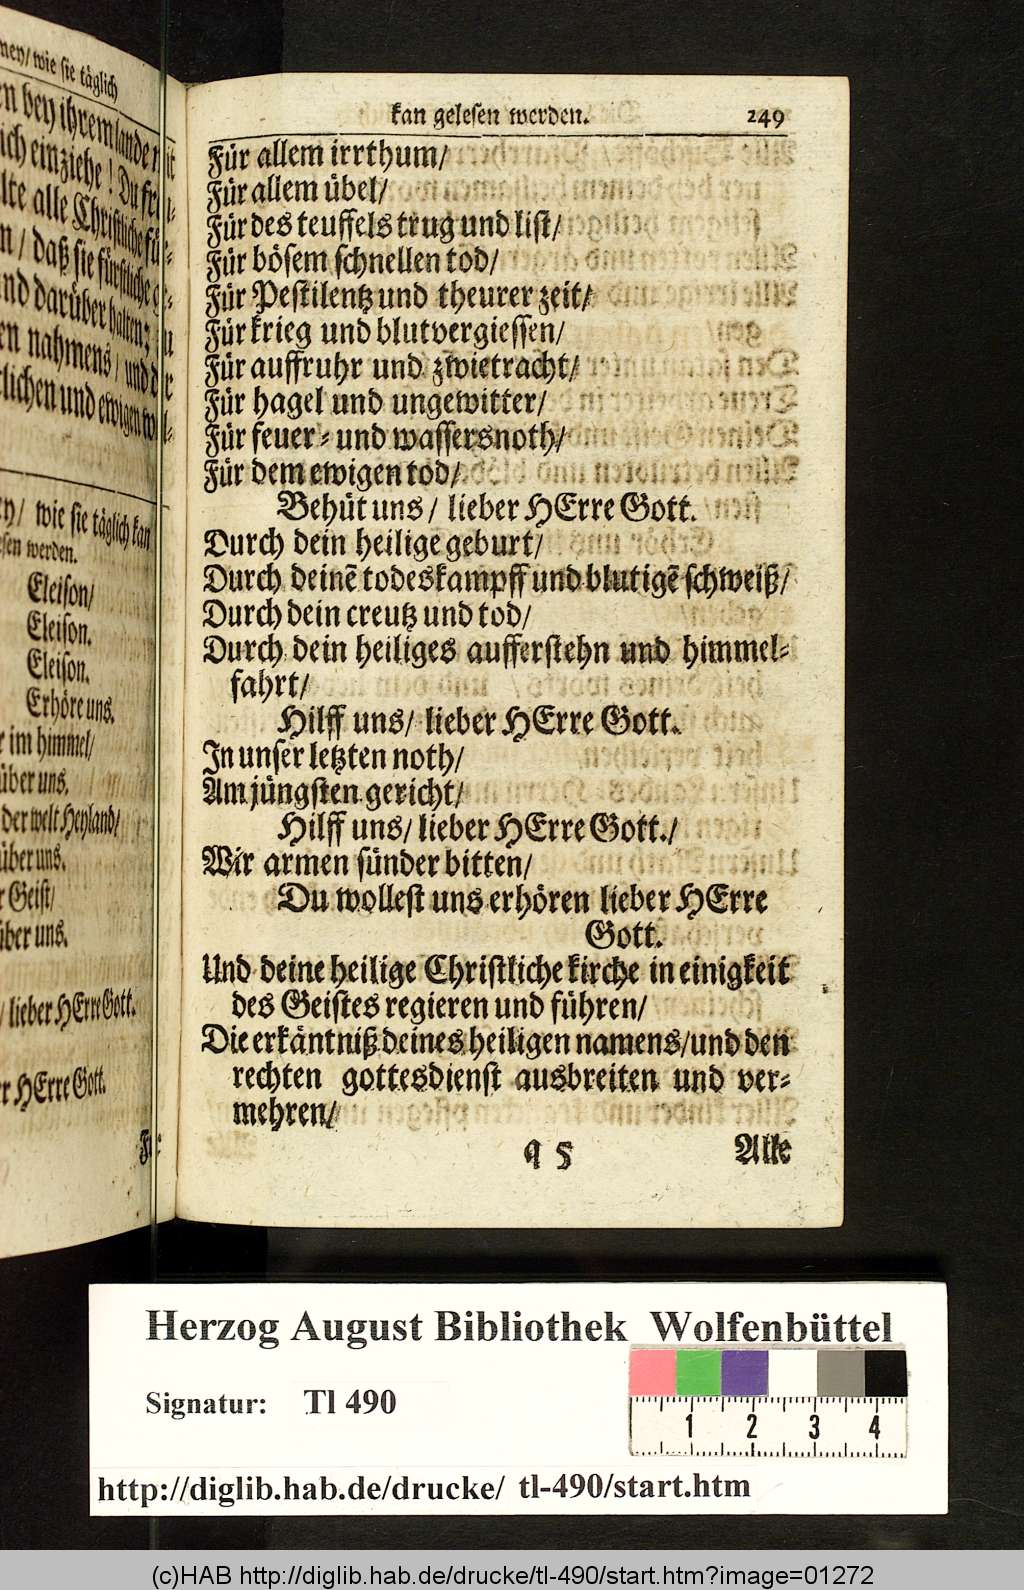 wie sie täglich
bey ihrem lande
einziehe! Du
alle Christliche
daß sie fürstliche
darüber halten;
nahmens/ und
und ewigen
wie sie täglich kan
werden.
Eleison/
Eleison.
Eleison.
Erhöre uns.
im himmel/
über uns.
der welt Heyland/
über uns.
Geist/
über uns.
/ lieber HErre Gott.
HErre Gott.
kan gelesen werden. 249
Für allem irrthum/
Für allem übel/
Für des teuffels trug und list/
Für bösem schnellen tod/
Für Pestilentz und theurer zeit/
Für krieg und blutvergiessen/
Für auffruhr und zwietracht/
Für hagel und ungewitter/
Für feuer- und wassersnoth/
Für dem ewigen tod/
Behüt uns/ lieber HErre Gott.
Durch dein heilige geburt/
Durch deinē todeskampff und blutigē schweiß/
Durch dein creutz und tod/
Durch dein heiliges aufferstehn und himmel-
fahrt/
Hilff uns/ lieber HErre Gott.
In unser letzten noth/
Am jüngsten gericht/
Hilff uns/ lieber HErre Gott./
Wir armen sünder bitten/
Du wollest uns erhören lieber HErre
Gott.
Und deine heilige Christliche kirche in einigkeit
des Geistes regieren und führen/
Die erkäntniß deines heiligen namens/und den
rechten gottesdienst ausbreiten und ver-
mehren/
q 5 Alle
Herzog August Bibliothek Wolfenbüttel
Signatur: Tl 490
1 2 3 4
http://diglib.hab.de/drucke/ tl-490/start.htm
(c)HAB http://diglib.hab.de/drucke/tl-490/start.htm?image=01272